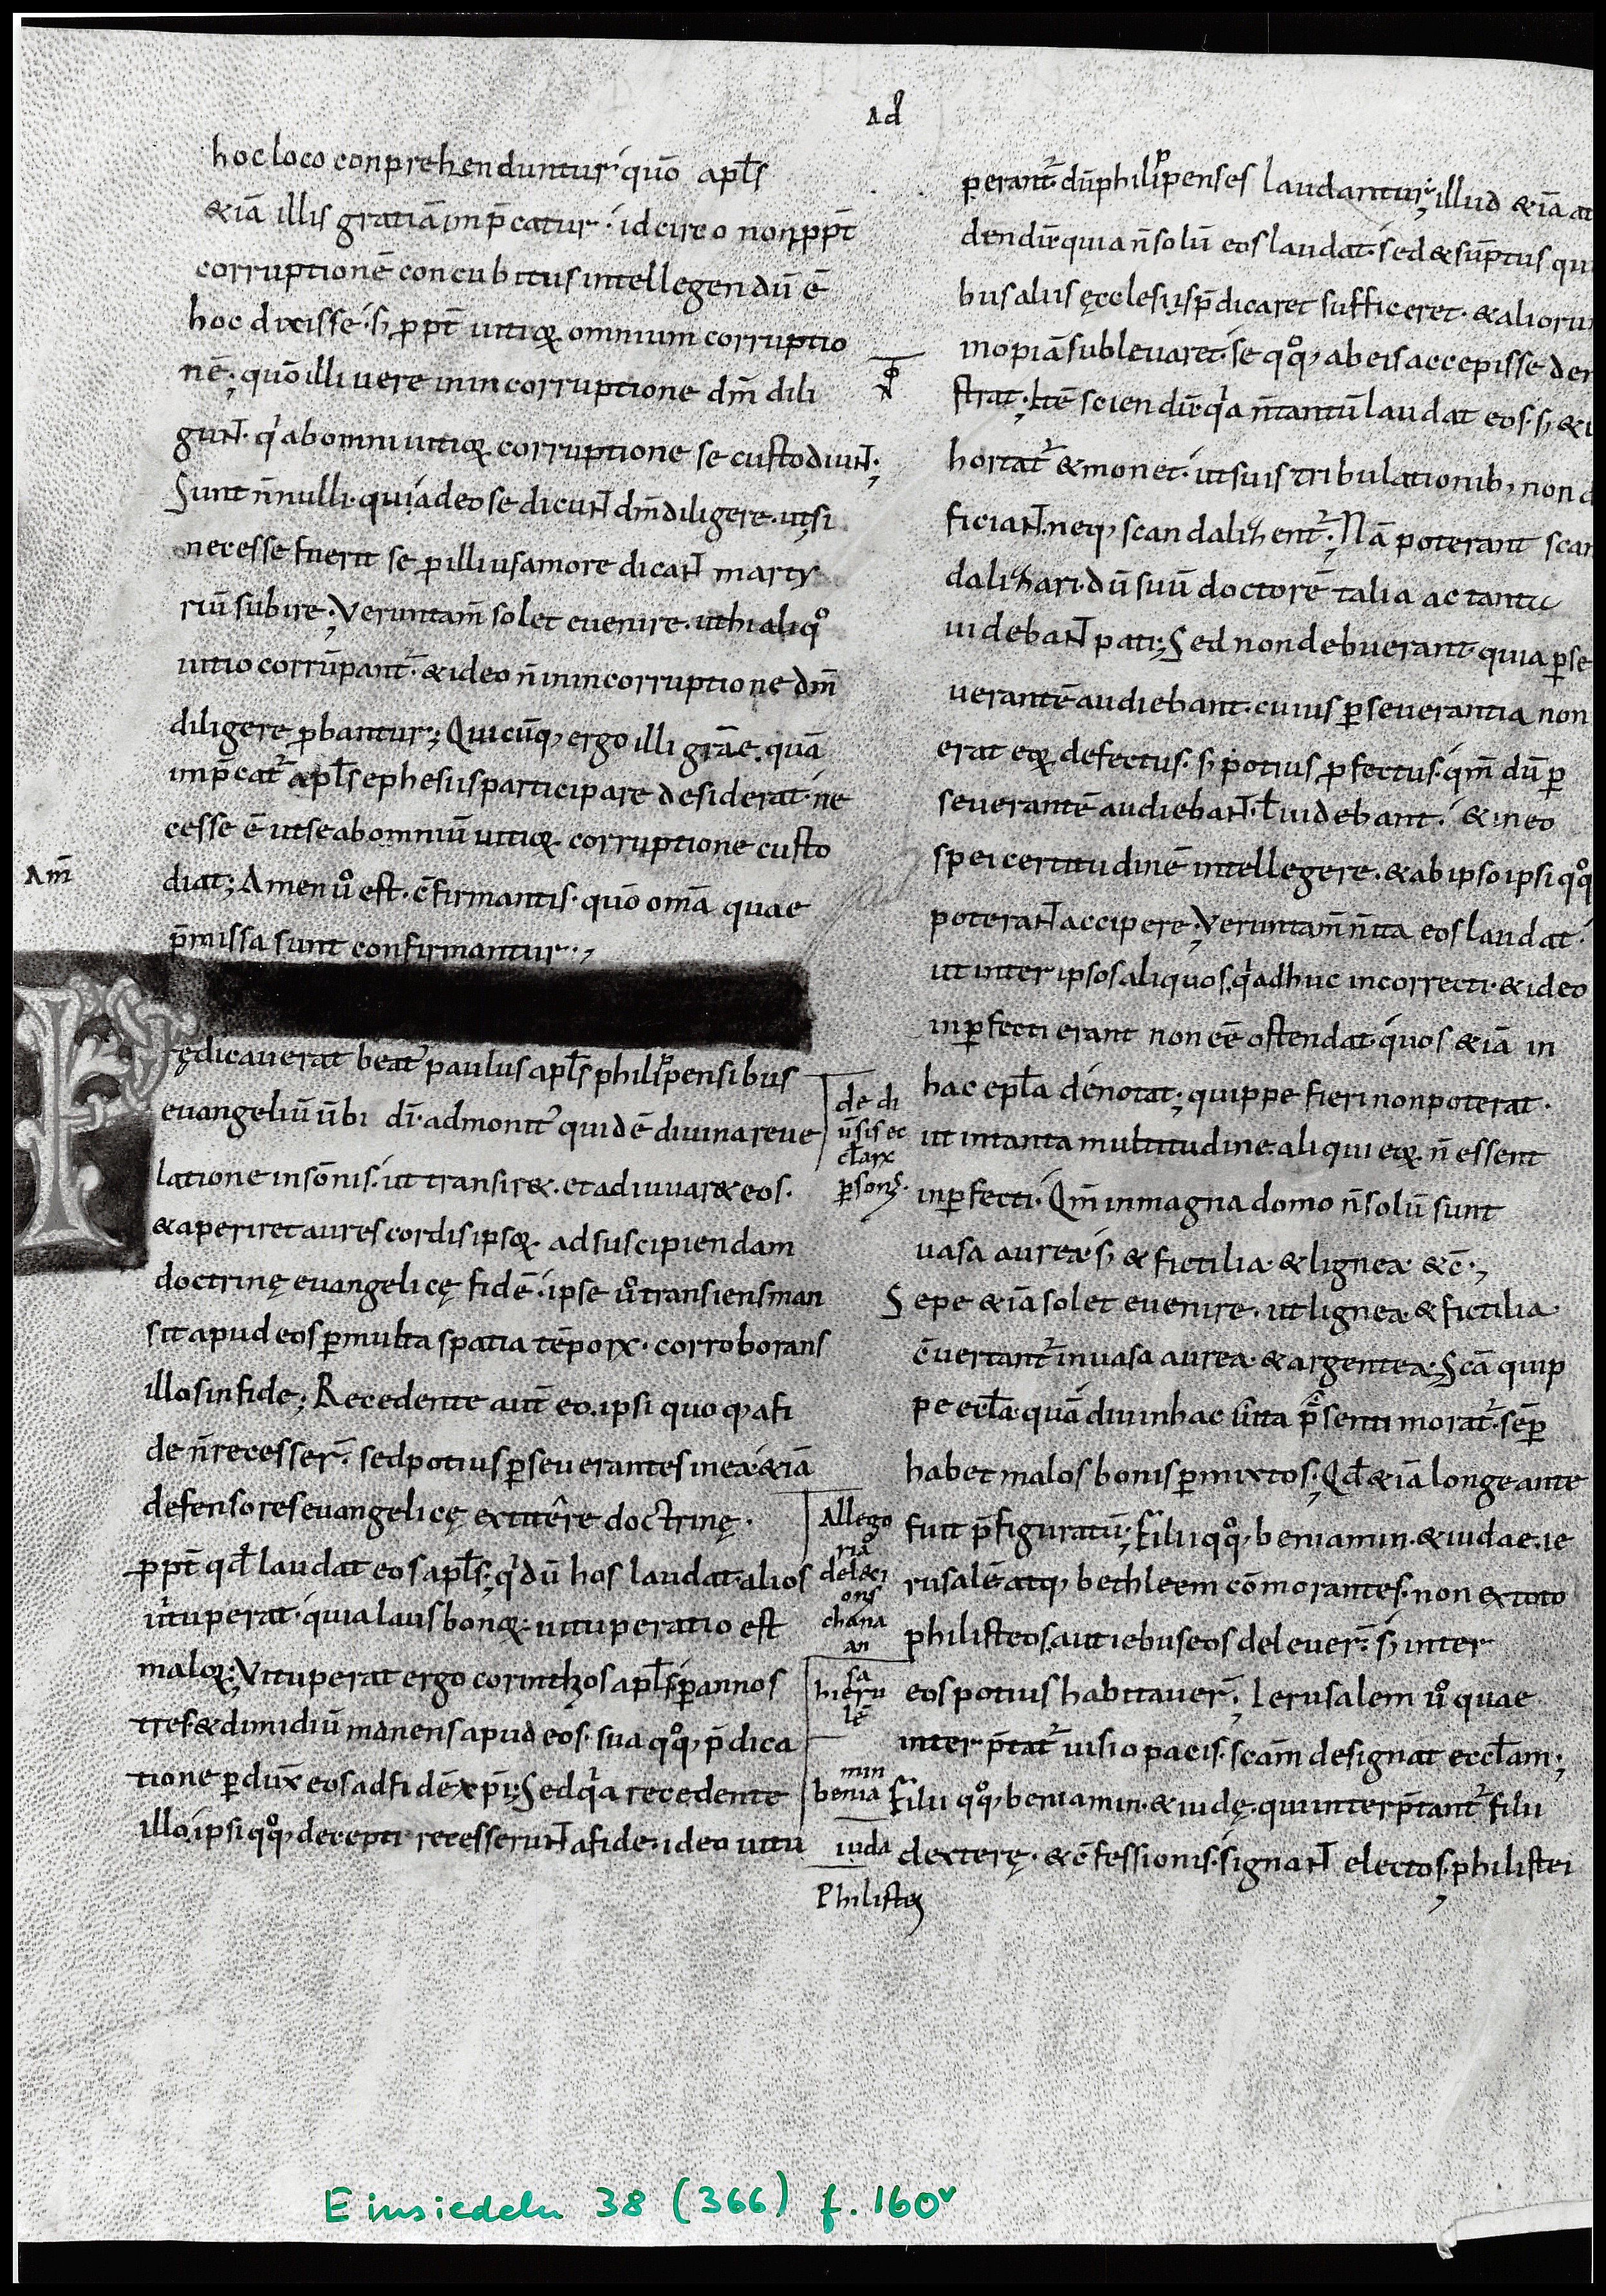 Ad
hoc loco conprehenduntur· quō apłs
&iā illis gratiā inp̄catur· idcirco non ꝓpt̄
corruptionē concubitus intellegendū ē
hoc dixisse· sꝫ ꝓpt̄ uitioꝝ omnium corruptio
nē; quō illi uere in incorruptione dm̄ dili
guNT· qͥ ab omni uitioꝝ corruptione se custodiuNT·;
Sunt n̄nulli· qui adeo se dicuNT dm̄ diligere· ut si
necesse fuerit se ꝑ illius amore dicaNT marty
riū subire; Veruntam̄ solet euenire· ut hi aliqͦ
uitio corrūpant᷑· & ideo n̄ in incorruptione dm̄
diligere ꝓbantur; Quicūq, ergo illi grāe· quā
inp̄cat᷑ apłs ephesiis participare desiderat· ne
cesse ē ut se ab omniū uitioꝝ corruptione custo
Am̄
diat; Amen uͦ est· c̄firmantis· quō om̄a quae
p̄missa sunt confirmantur·,
P
rędicauerat beat᷒ paulus apłs philippensibus
euangeliū ūbi dī· admonit᷒ quidē diuina reue
latione in sōnis· ut transir&· et adiuuar& eos·
& aperiret aures cordis ipsoꝝ ad suscipiendam
doctrinę euangelicę fidē· ipse uͦ transiens man
sit apud eos ꝑ multa spatia tēporꝝ· corroborans
illos in fide; Recedente aut̄ eo· ipsi quoq, a fi
de n̄ recesser̄· sed potius ꝑseuerantes in ea· &iā
defensores euangelicę extitêre doctrinę·
ꝓpt̄ qđ laudat eos apłs; qͥ dū hos laudat· alios
uituperat· quia laus bonoꝝ· uituperatio est
maloꝝ; Vituperat ergo corinthios apłs· ꝑ annos
tres & dimidiū manens apud eos· sua qͦq, p̄dica
tione ꝑdux̄ eos ad fidē xp̄i; Sed qͥa recedente
illo· ipsi qͦq, decepti recesseruNT a fide· ideo uitu
de di
ūsis ec
cłarꝝ
ꝑsonꝭ·
Allego
ria
delecti
onꝭ
chana
an
sa
hieru
lē
min
benia
iuda
Philistei
perant᷑· dū philippenses laudantur; illud &iā at
dendū· quia n̄ solū eos laudat· sed & sūptus qui
bus aliis ęcclesiis p̄dicaret sufficeret· & alioru
inopiā subleuaret· se qͦq, ab eis accepisse dem
strat; Itē sciendū· qͥa n̄ tantū laudat eos· sꝫ &
hortat᷑ & monet· ut suis tribulationib, non d
ficiaNT· neq, scandalizent᷑; Nā poterant scan
dalizari· dū suū doctorē talia ac tanta
uidebaNT pati; Sed non debuerant· quia ꝑse
uerantē audiebant· cuius ꝑseuerantia non
erat eoꝝ defectus· sꝫ potius ꝓfectus· qm̄ dū ꝑ
seuerantē audiebaNT· ł uidebant· & in eo
spei certitudinē intellegere· & ab ipso ipsi qͦq
poteraNT accipere; Veruntam̄ n̄ ita eos laudat·
ut inter ipsos aliquos· qͥ adhuc incorrecti· & ideo
inꝑfecti erant non eē ostendat· quos &iā in
hac epła denotat; quippe fieri non poterat·
ut in tanta multitudine· aliqui eoꝝ n̄ essent
inꝑfecti· Qm̄ in magna domo n̄ solū sunt
uasa aurea· sꝫ & fictilia· & lignea· &c̄·,
Sepe &iā solet euenire· ut lignea· & fictilia
c̄uertant᷑ in uasa aurea· & argentea; Scā quip
pe eccła· quā diu in hac uita p̄senti morat᷑· sēꝑ
habet malos bonis ꝑmixtos; Qđ &iā longe ante
fuit p̄figuratū; Filii qͦq, beniamin· & iudae· ie
rusalē atq, bethleem cōmorantes· non ex toto
philisteos aut iebuseos deleuer̄· sꝫ inter
eos potius habitauer̄; Ierusalem uͦ quae
interp̄tat᷑ uisio pacis· scam̄ designat eccłam;
Filii qͦq, beniamin· & iudę· qui interp̄tant᷑ filii
dexterę· & c̄fessionis· signaNT electos; philistei
Einsiedeln 38 (366) f. 160v